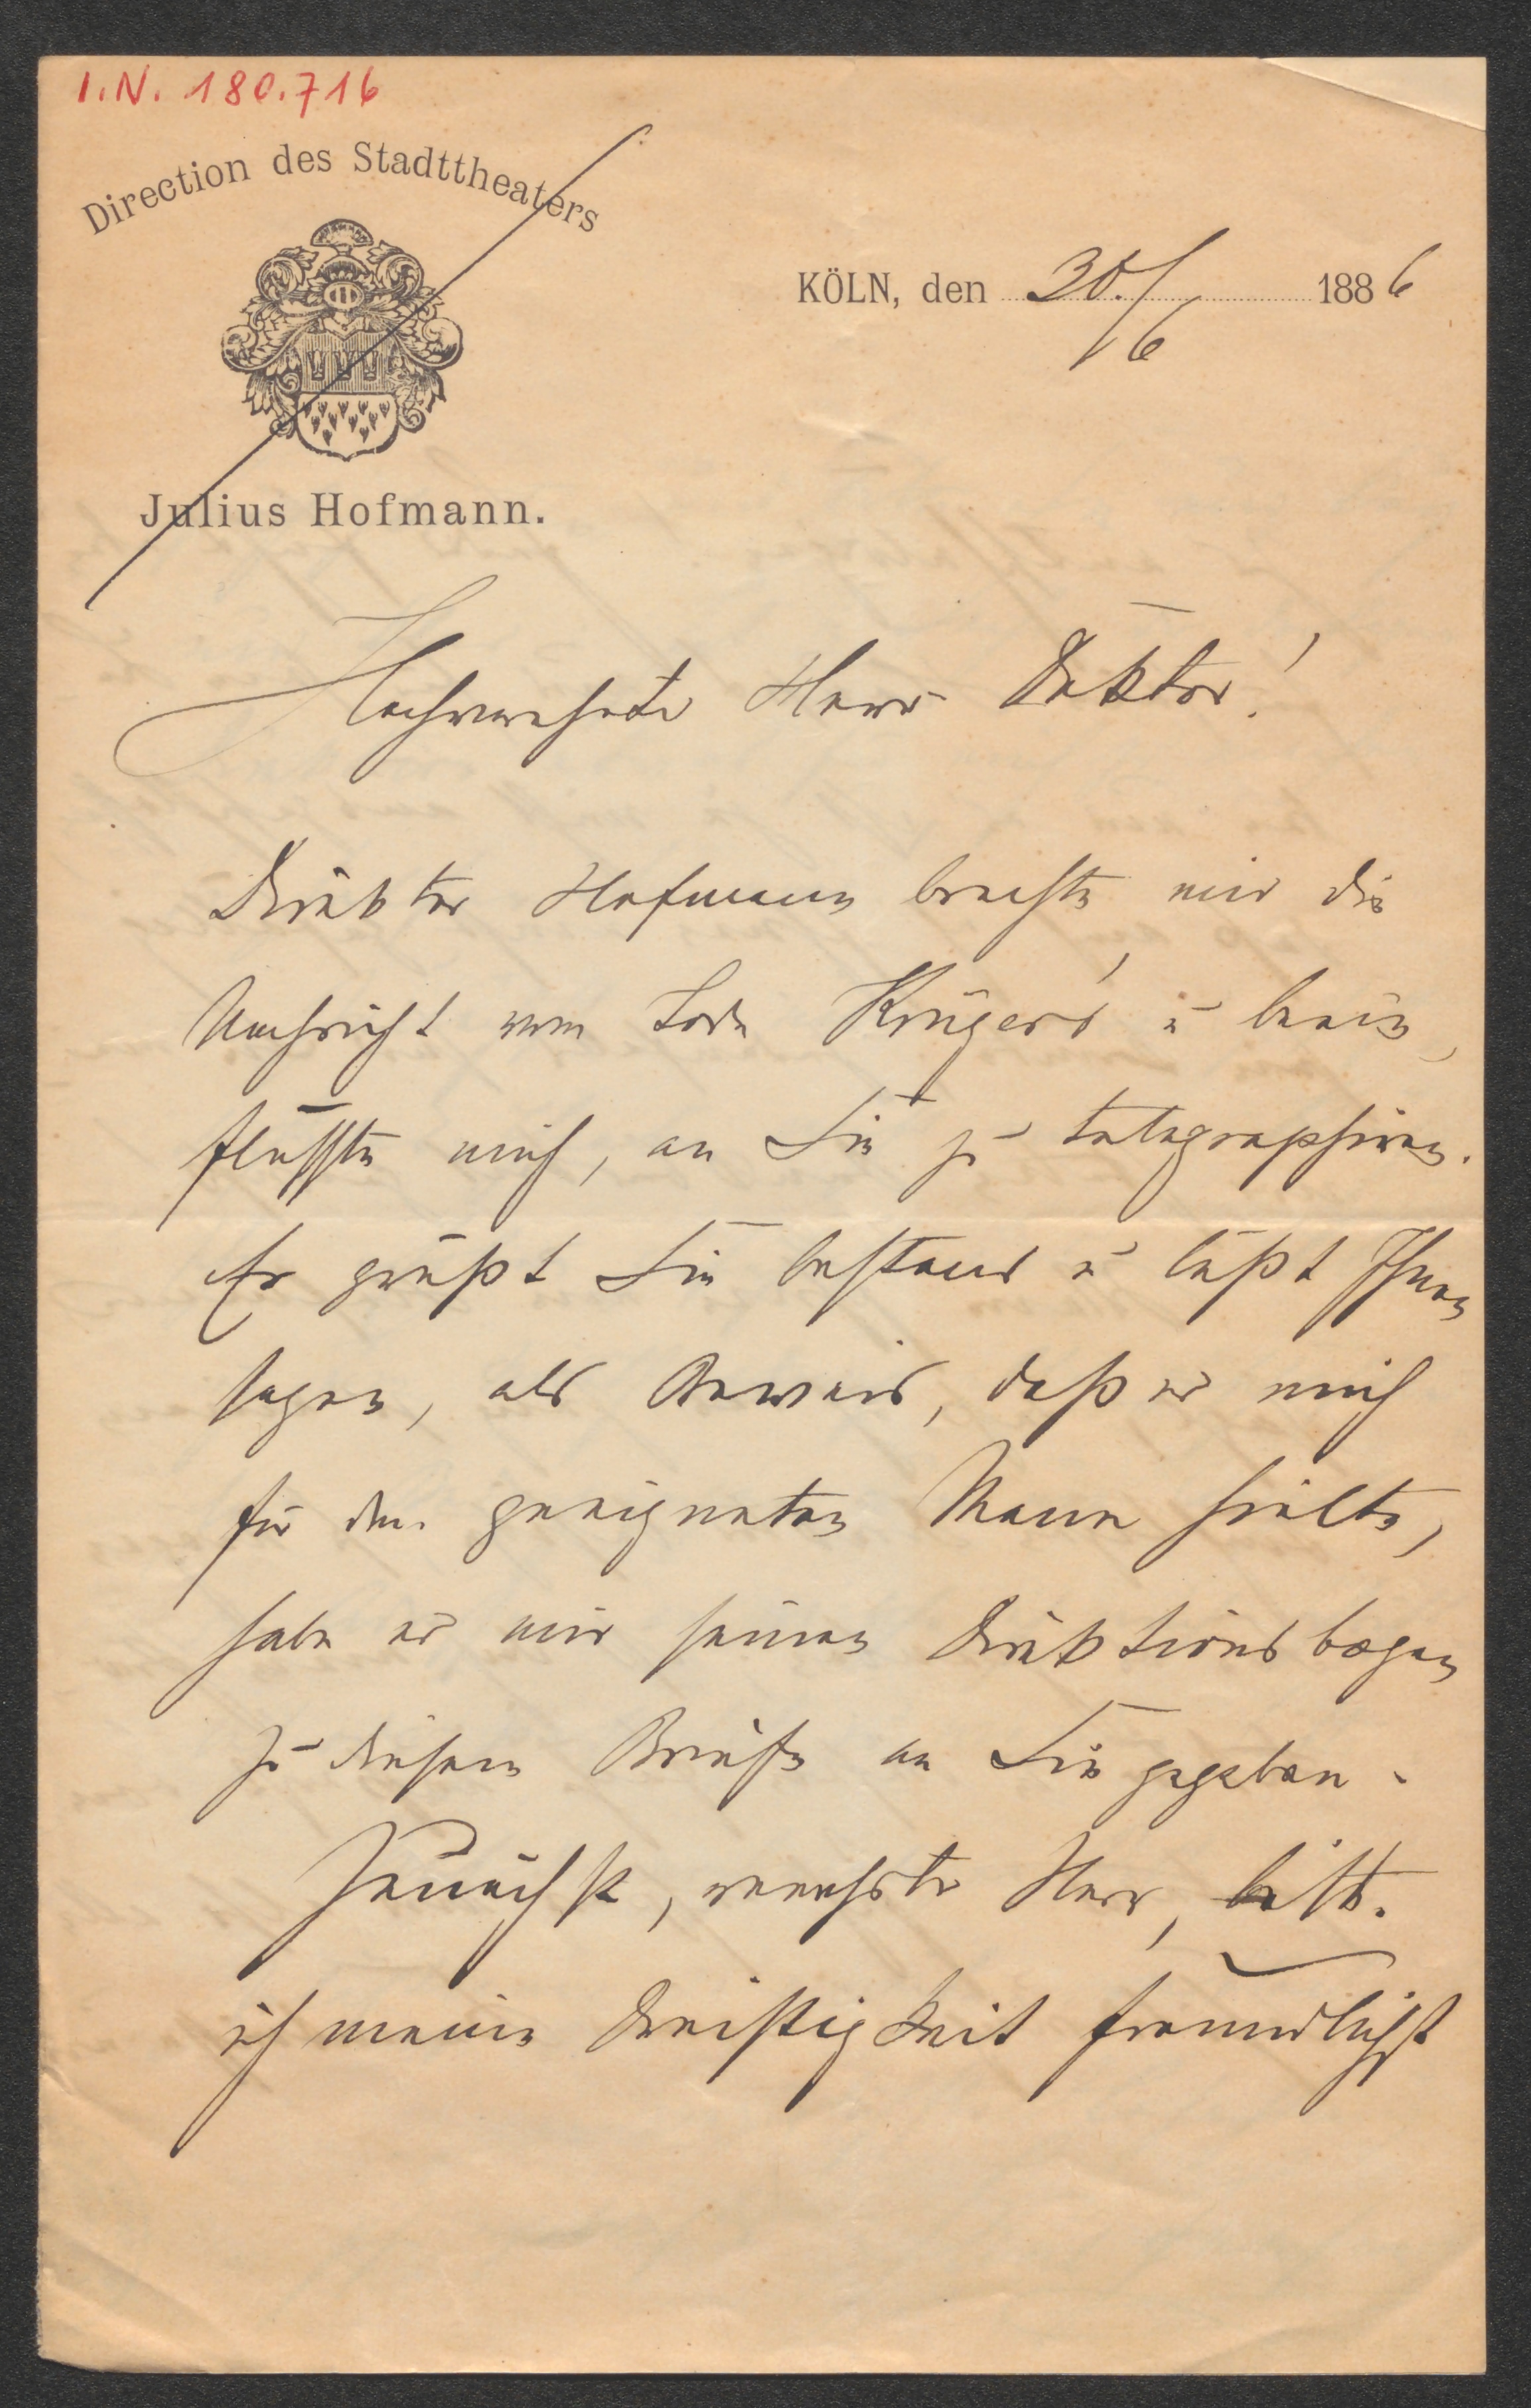 I.N. 180.716
Direction des Stadttheaters
KÖLN, den 30./6 1886
Julius Hofmann.
Hochverehrter Herr Doktor!
Direktor Hofmann brachte mir die
Nachricht vom Tode Krüger's u beein
flußte mich, an Sie zu telegraphiren.
Er grüßt Sie bestens u läßt Ihnen
sagen, als Beweis, daß er mich
für den geeigneten Mann hielte,
habe er mir seinen Direktionsbogen
zu diesem Briefe an Sie gegeben.
Zunächst, verehrter Herr, bitte
ich meine Dreistigkeit freundlichst